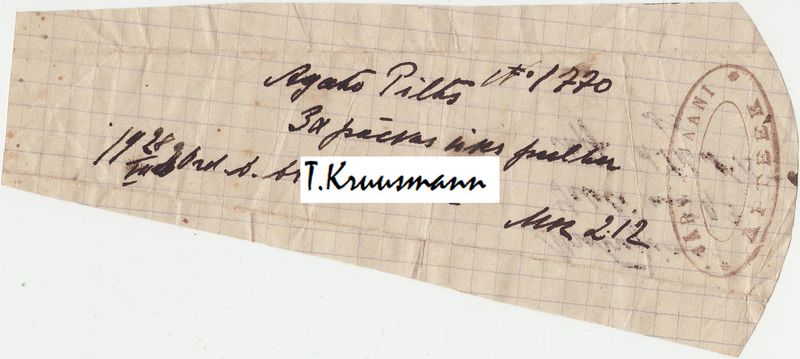 Agate Pilts No 1770
3x päevas üks pulber
1928 Ord. d.
T.Kruusmann
Mk 2.12
JÄRVA-JAANI
APTEEK